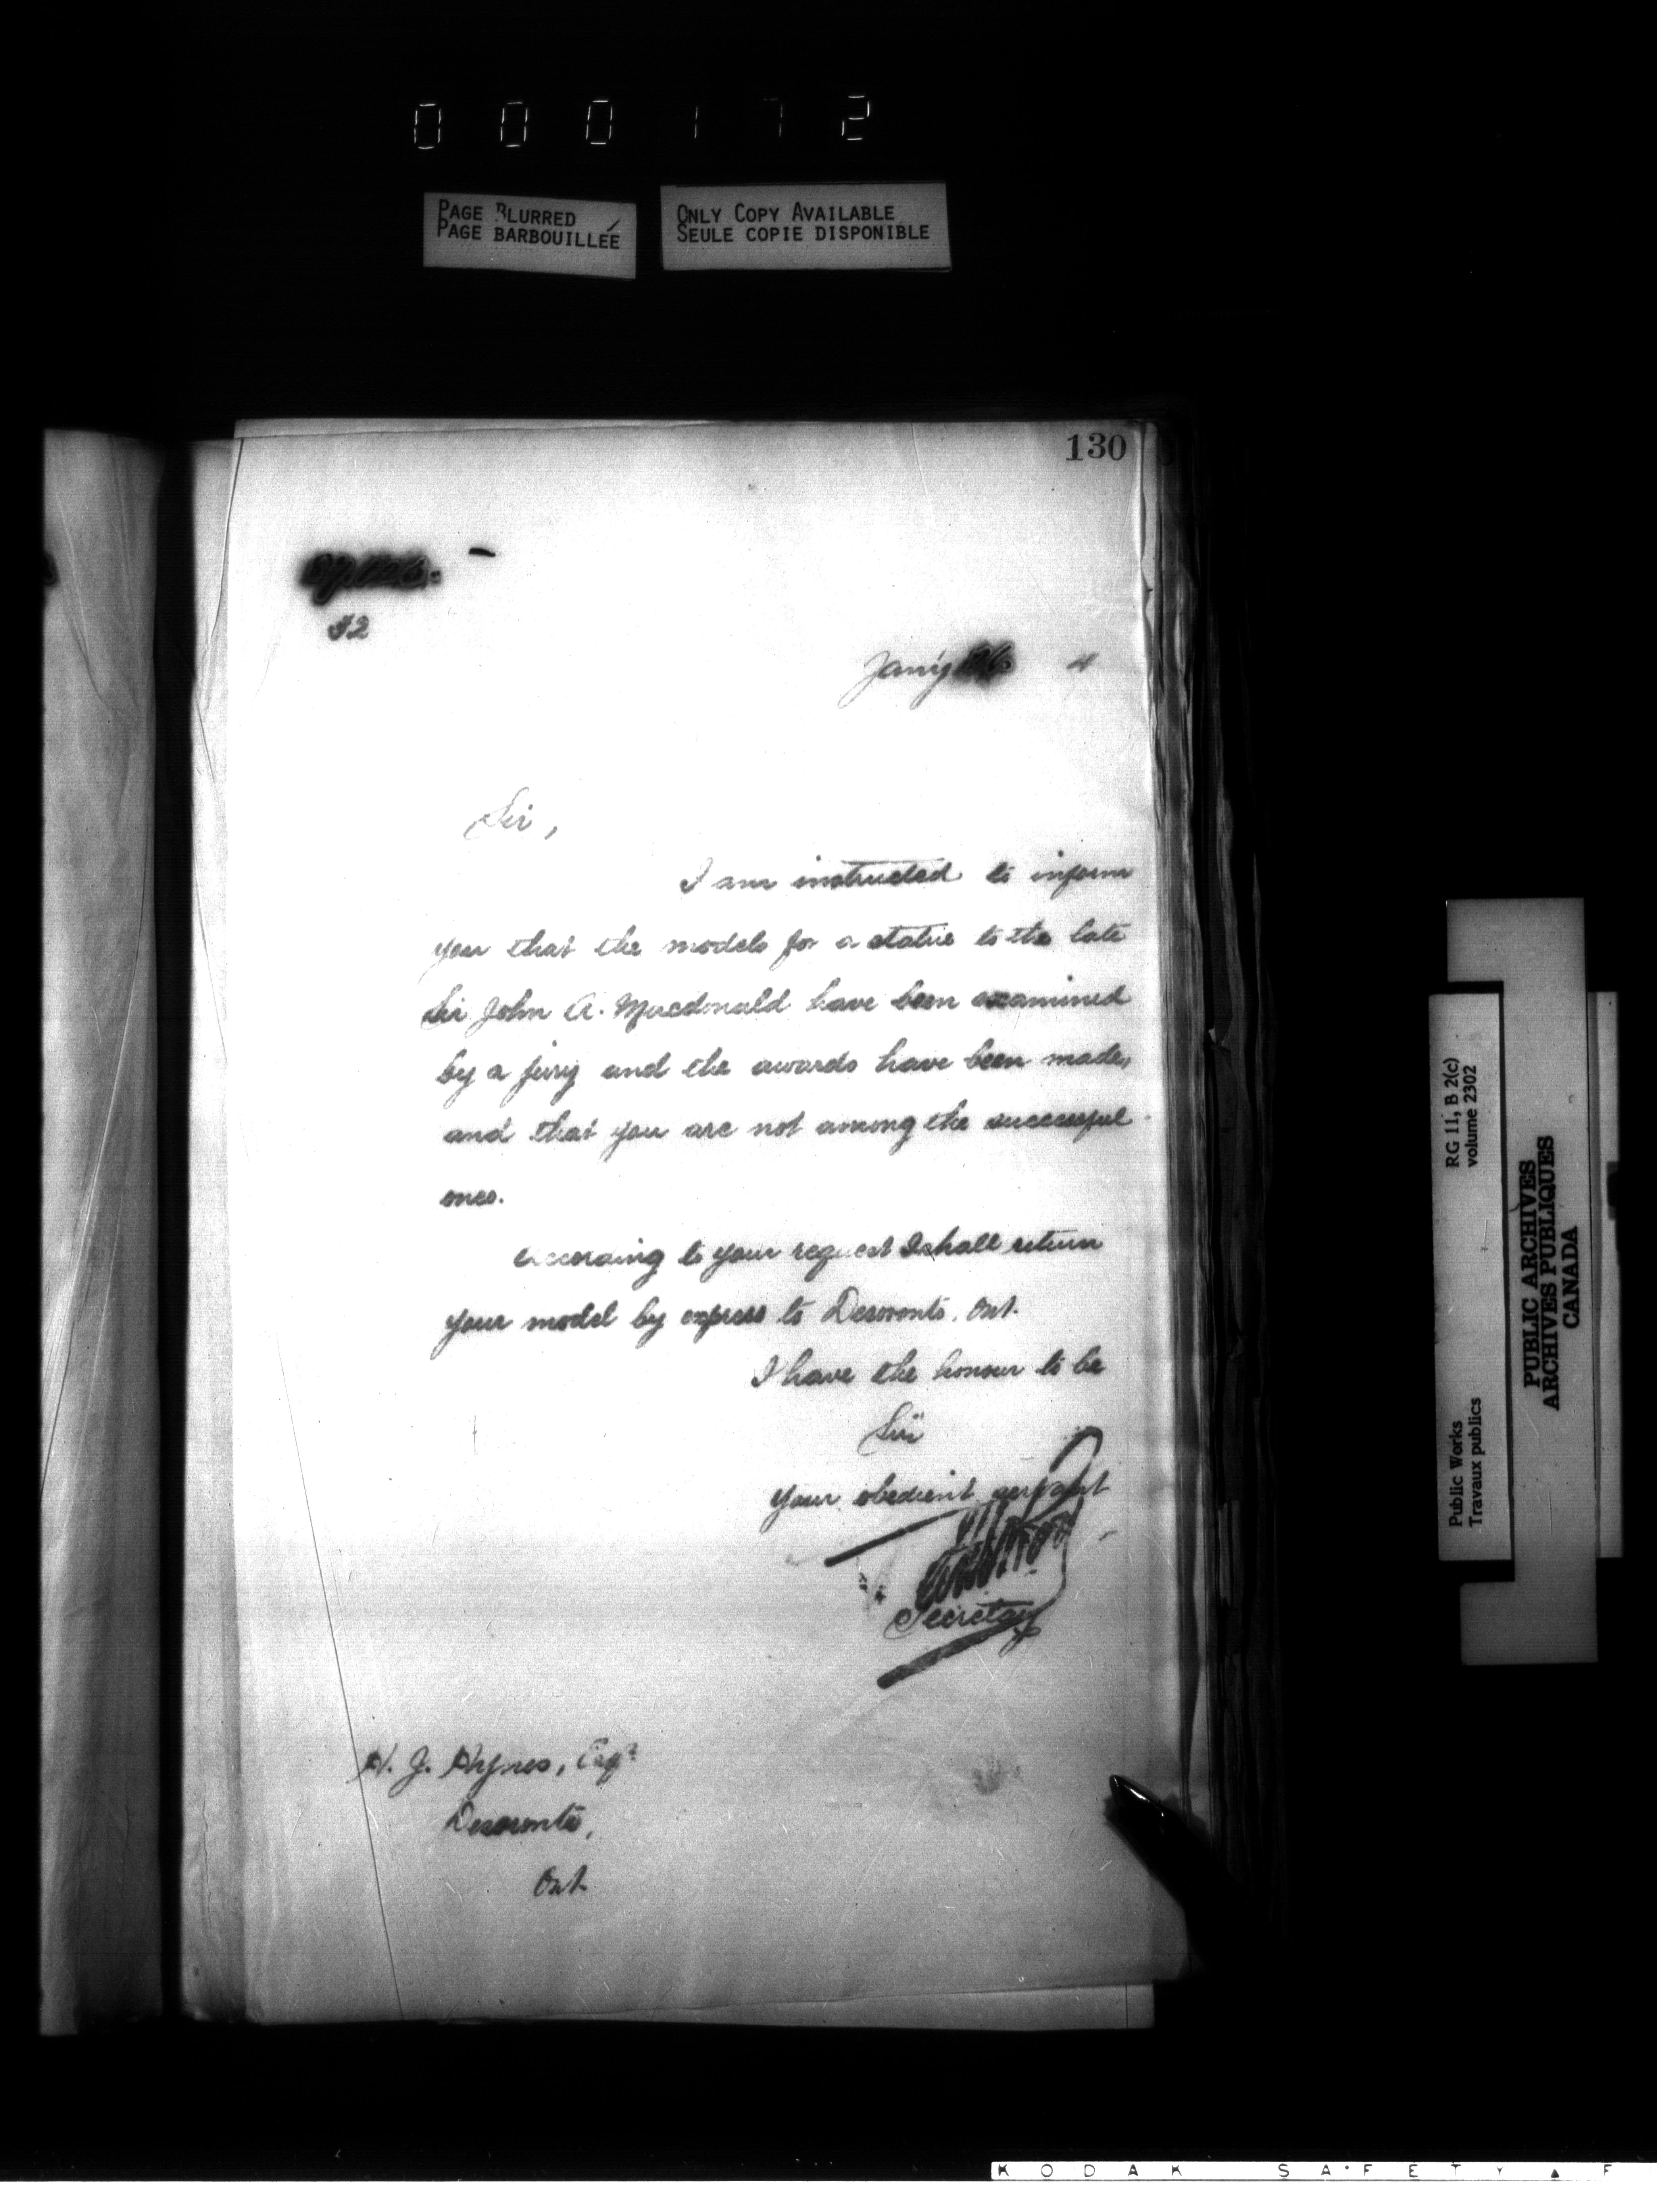 000172
PAGE BLURRED
PAGE BARBOUILLÉE
ONLY COPY AVAILABLE
SEULE COPIE DISPONIBLE
130
32
Jan'y 4
Sir,
I am instructed to inform
you that the models for a statue to the late
Sir John A. Macdonald have been examined
by a jury and the awards have been made,
and that you are not among the successful
ones.
According to your request I shall return
your model by express to Deseronto, Ont.
I have the honour to be
Sir
Your obedient servant
Secretary
H. J. Hynes, Esqr
Deseronto,
Ont.
Public Works
Travaux publics
RG 11, B 2(c)
volume 2302
PUBLIC ARCHIVES
ARCHIVES PUBLIQUES
CANADA
KODAK SAFETY F